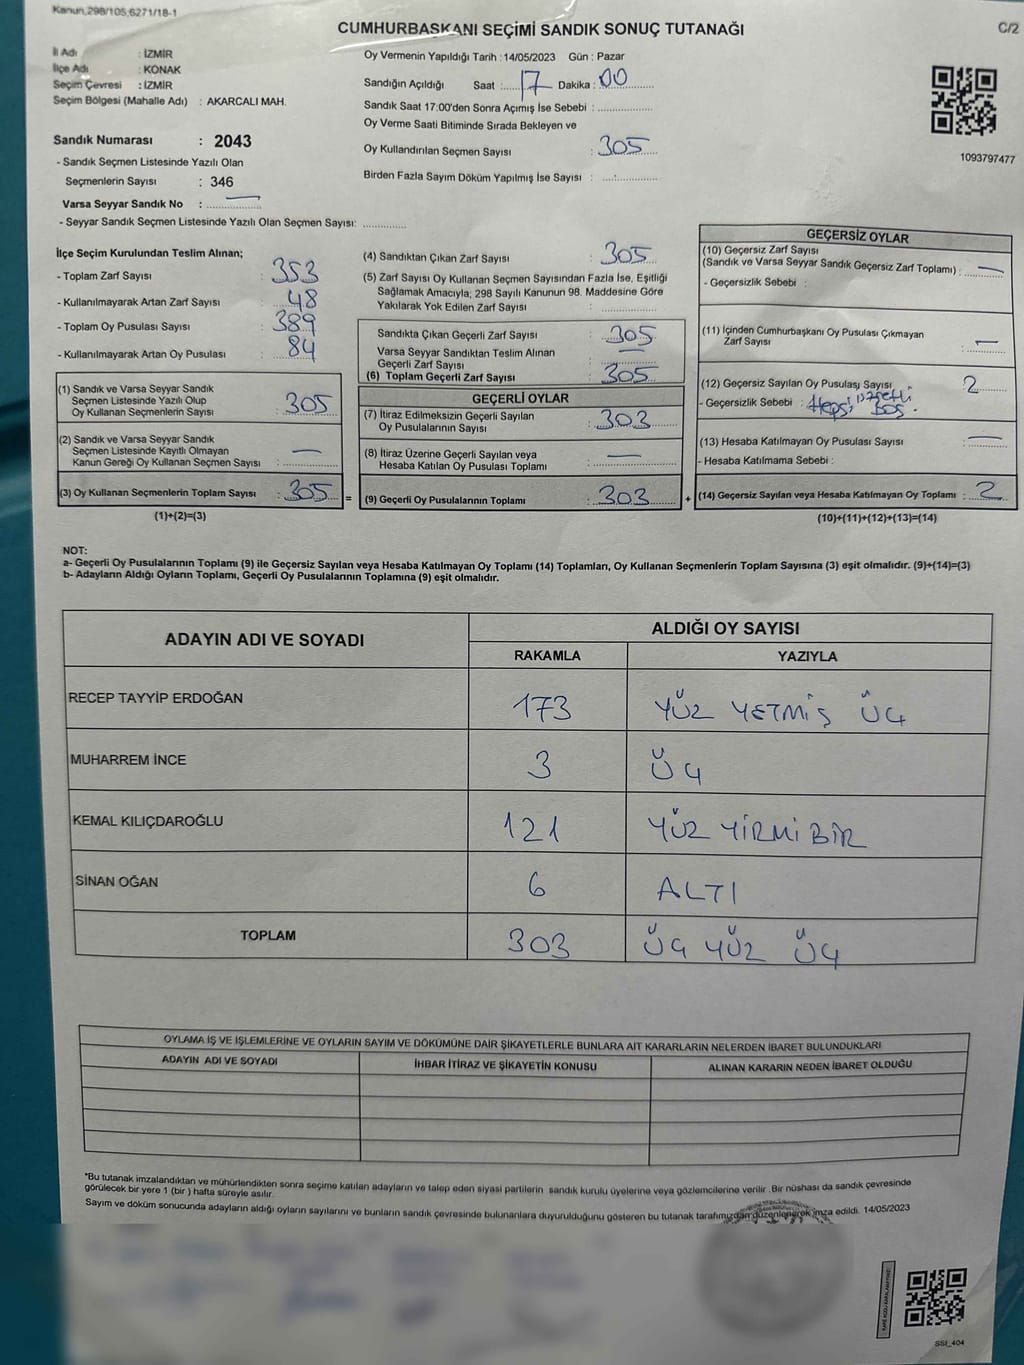 Kanun,298/105,6271/18-1
CUMHURBAŞKANI SEÇİMİ SANDIK SONUÇ TUTANAĞI
C/2
İl Adı : İZMİR
İlçe Adı : KONAK
Seçim Çevresi : İZMİR
Seçim Bölgesi (Mahalle Adı) : AKARCALI MAH.
Oy Vermenin Yapıldığı Tarih : 14/05/2023 Gün : Pazar
Sandığın Açıldığı Saat : 17 Dakika : 00
Sandık Saat 17:00'den Sonra Açımış İse Sebebi :
Oy Verme Saati Bitiminde Sırada Bekleyen ve
Oy Kullandırılan Seçmen Sayısı : 305
Birden Fazla Sayım Döküm Yapılmış İse Sayısı :
1093797477
Sandık Numarası : 2043
- Sandık Seçmen Listesinde Yazılı Olan
Seçmenlerin Sayısı : 346
Varsa Seyyar Sandık No : —
- Seyyar Sandık Seçmen Listesinde Yazılı Olan Seçmen Sayısı:
İlçe Seçim Kurulundan Teslim Alınan;
- Toplam Zarf Sayısı : 353
- Kullanılmayarak Artan Zarf Sayısı : 48
- Toplam Oy Pusulası Sayısı : 389
- Kullanılmayarak Artan Oy Pusulası : 84
(1) Sandık ve Varsa Seyyar Sandık
Seçmen Listesinde Yazılı Olup
Oy Kullanan Seçmenlerin Sayısı : 305
(2) Sandık ve Varsa Seyyar Sandık
Seçmen Listesinde Kayıtlı Olmayan
Kanun Gereği Oy Kullanan Seçmen Sayısı : —
(3) Oy Kullanan Seçmenlerin Toplam Sayısı : 305 =
(1)+(2)=(3)
(4) Sandıktan Çıkan Zarf Sayısı : 305
(5) Zarf Sayısı Oy Kullanan Seçmen Sayısından Fazla İse, Eşitliği
Sağlamak Amacıyla; 298 Sayılı Kanunun 98. Maddesine Göre
Yakılarak Yok Edilen Zarf Sayısı :
Sandıkta Çıkan Geçerli Zarf Sayısı : 305
Varsa Seyyar Sandıktan Teslim Alınan
Geçerli Zarf Sayısı : —
(6) Toplam Geçerli Zarf Sayısı : 305
GEÇERLİ OYLAR
(7) İtiraz Edilmeksizin Geçerli Sayılan
Oy Pusulalarının Sayısı : 303
(8) İtiraz Üzerine Geçerli Sayılan veya
Hesaba Katılan Oy Pusulası Toplamı : —
(9) Geçerli Oy Pusulalarının Toplamı : 303 +
GEÇERSİZ OYLAR
(10) Geçersiz Zarf Sayısı
(Sandık ve Varsa Seyyar Sandık Geçersiz Zarf Toplamı) : —
- Geçersizlik Sebebi :
(11) İçinden Cumhurbaşkanı Oy Pusulası Çıkmayan
Zarf Sayısı : —
(12) Geçersiz Sayılan Oy Pusulası Sayısı : 2
- Geçersizlik Sebebi : Hepsi işaretli Boş.
(13) Hesaba Katılmayan Oy Pusulası Sayısı : —
- Hesaba Katılmama Sebebi :
(14) Geçersiz Sayılan veya Hesaba Katılmayan Oy Toplamı : 2
(10)+(11)+(12)+(13)=(14)
NOT:
a- Geçerli Oy Pusulalarının Toplamı (9) ile Geçersiz Sayılan veya Hesaba Katılmayan Oy Toplamı (14) Toplamları, Oy Kullanan Seçmenlerin Toplam Sayısına (3) eşit olmalıdır. (9)+(14)=(3)
b- Adayların Aldığı Oyların Toplamı, Geçerli Oy Pusulalarının Toplamına (9) eşit olmalıdır.
ADAYIN ADI VE SOYADI ALDIĞI OY SAYISI
RAKAMLA YAZIYLA
RECEP TAYYİP ERDOĞAN 173 YÜZ YETMİŞ ÜÇ
MUHARREM İNCE 3 ÜÇ
KEMAL KILIÇDAROĞLU 121 YÜZ YİRMİ BİR
SİNAN OĞAN 6 ALTI
TOPLAM 303 ÜÇ YÜZ ÜÇ
OYLAMA İŞ VE İŞLEMLERİNE VE OYLARIN SAYIM VE DÖKÜMÜNE DAİR ŞİKAYETLERLE BUNLARA AİT KARARLARIN NELERDEN İBARET BULUNDUKLARI
ADAYIN ADI VE SOYADI İHBAR İTİRAZ VE ŞİKAYETİN KONUSU ALINAN KARARIN NEDEN İBARET OLDUĞU
*Bu tutanak imzalandıktan ve mühürlendikten sonra seçime katılan adayların ve talep eden siyasi partilerin sandık kurulu üyelerine veya gözlemcilerine verilir. Bir nüshası da sandık çevresinde
görülecek bir yere 1 (bir ) hafta süreyle asılır.
Sayım ve döküm sonucunda adayların aldığı oyların sayılarını ve bunların sandık çevresinde bulunanlara duyurulduğunu gösteren bu tutanak tarafımızdan düzenlenerek imza edildi. 14/05/2023
SSI_404